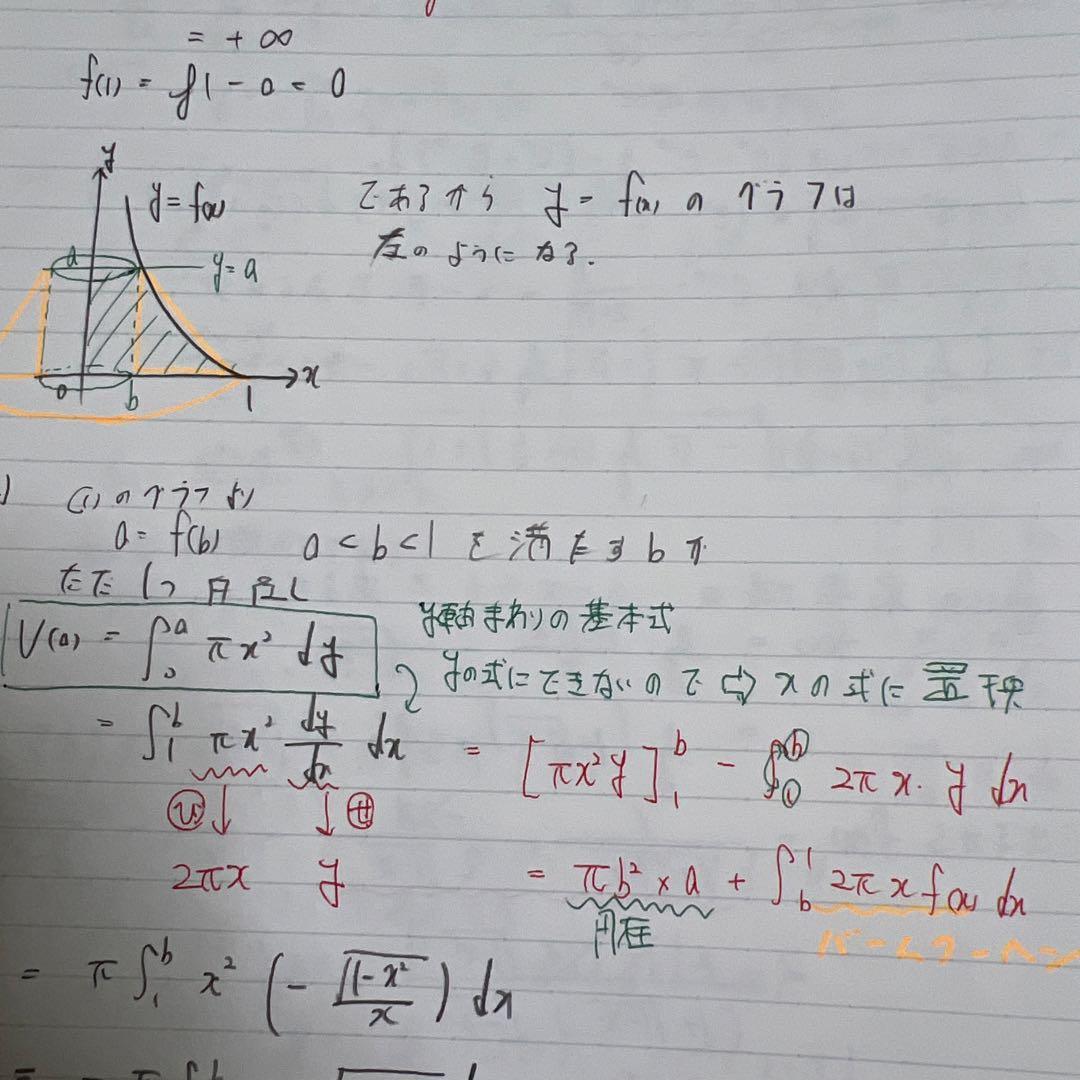 = +∞
f(1) = log 1 - 0 = 0
y
y = f(x)
であるから y = f(x) のグラフは
左のようになる.
a
y = a
x
0
b
1
(1) のグラフより
a = f(b) 0 < b < 1 を満たす b が
ただ 1つ
V(a) = ∫₀ᵃ πx² dy
y軸まわりの基本式
yの式にできないので ⇨ xの式に置換
= ∫₁ᵇ πx² dy/dx dx = [πx²y]₁ᵇ - ∫₁ᵇ 2πx・y dx
2πx y
= πb² × a + ∫ᵇ¹ 2πx f(x) dx
円柱
バームクーヘン
= π∫₁ᵇ x² (-√(1-x²)/x) dx